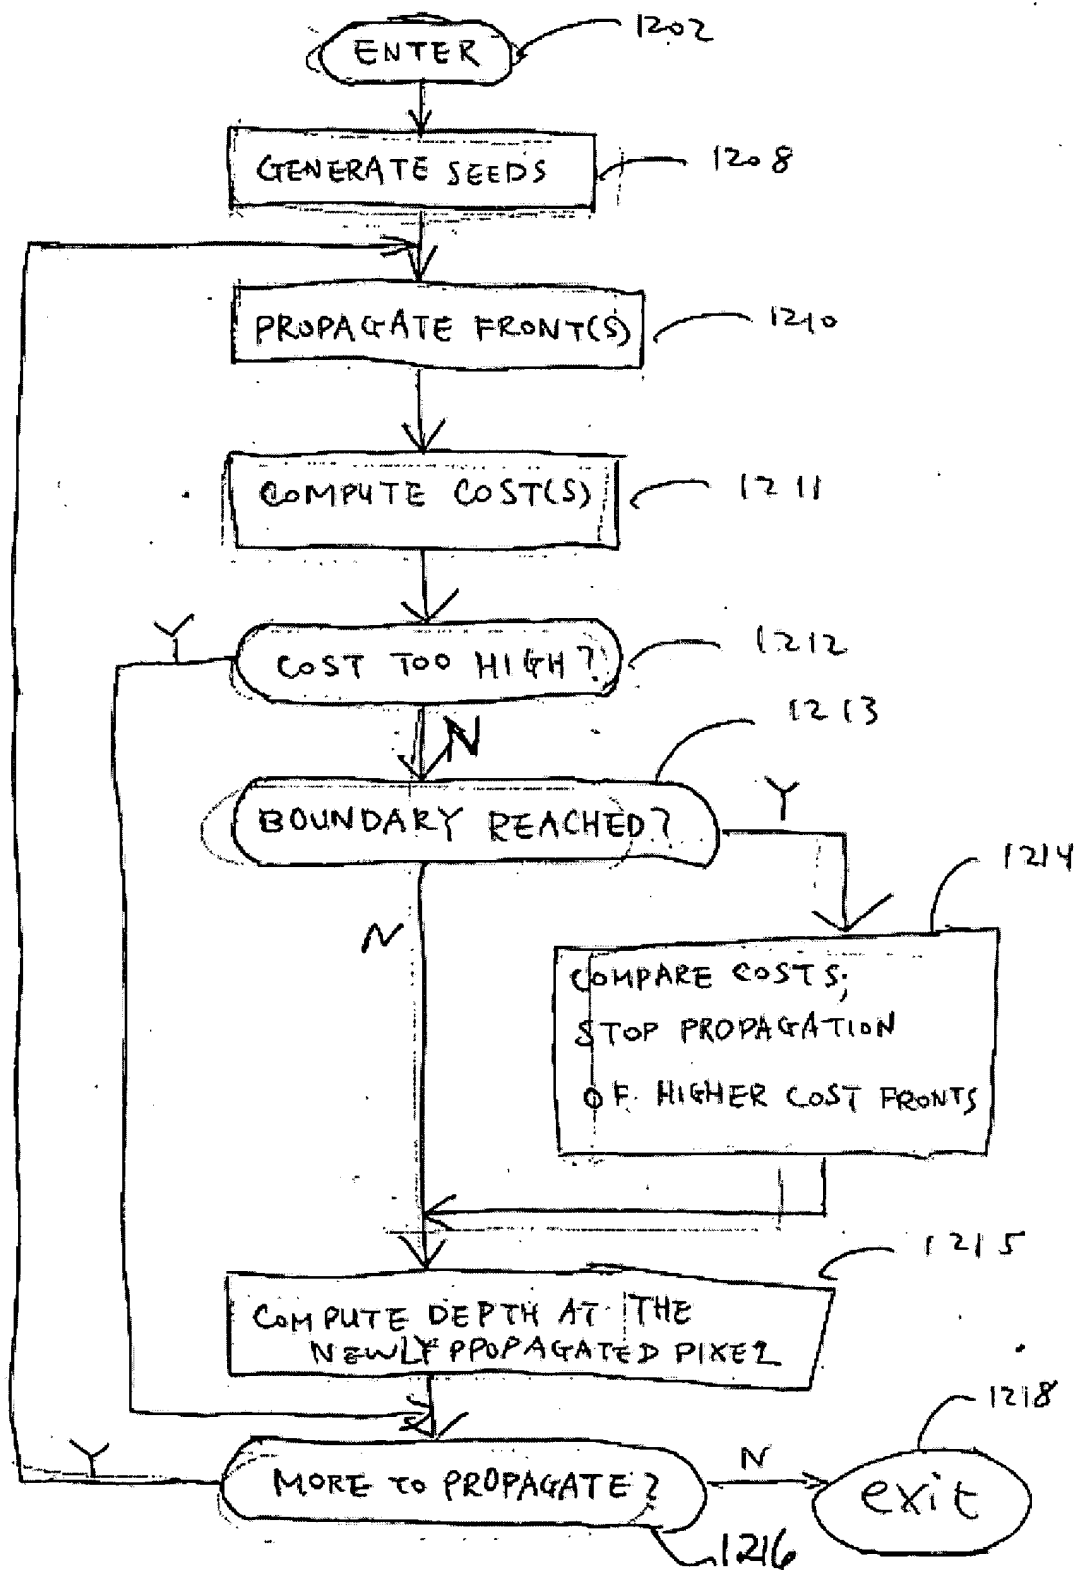 ENTER
1202
GENERATE SEEDS
1208
PROPAGATE FRONT(S)
1210
COMPUTE COST(S)
1211
Y
COST TOO HIGH?
1212
N
1213
BOUNDARY REACHED?
Y
1214
N
COMPARE COSTS;
STOP PROPAGATION
OF. HIGHER COST FRONTS
1215
COMPUTE DEPTH AT THE
NEWLY PROPAGATED PIXEL
1218
Y
MORE TO PROPAGATE?
N
exit
1216